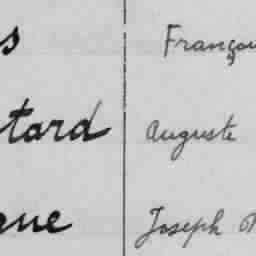 s Franço
tard Auguste
que Joseph